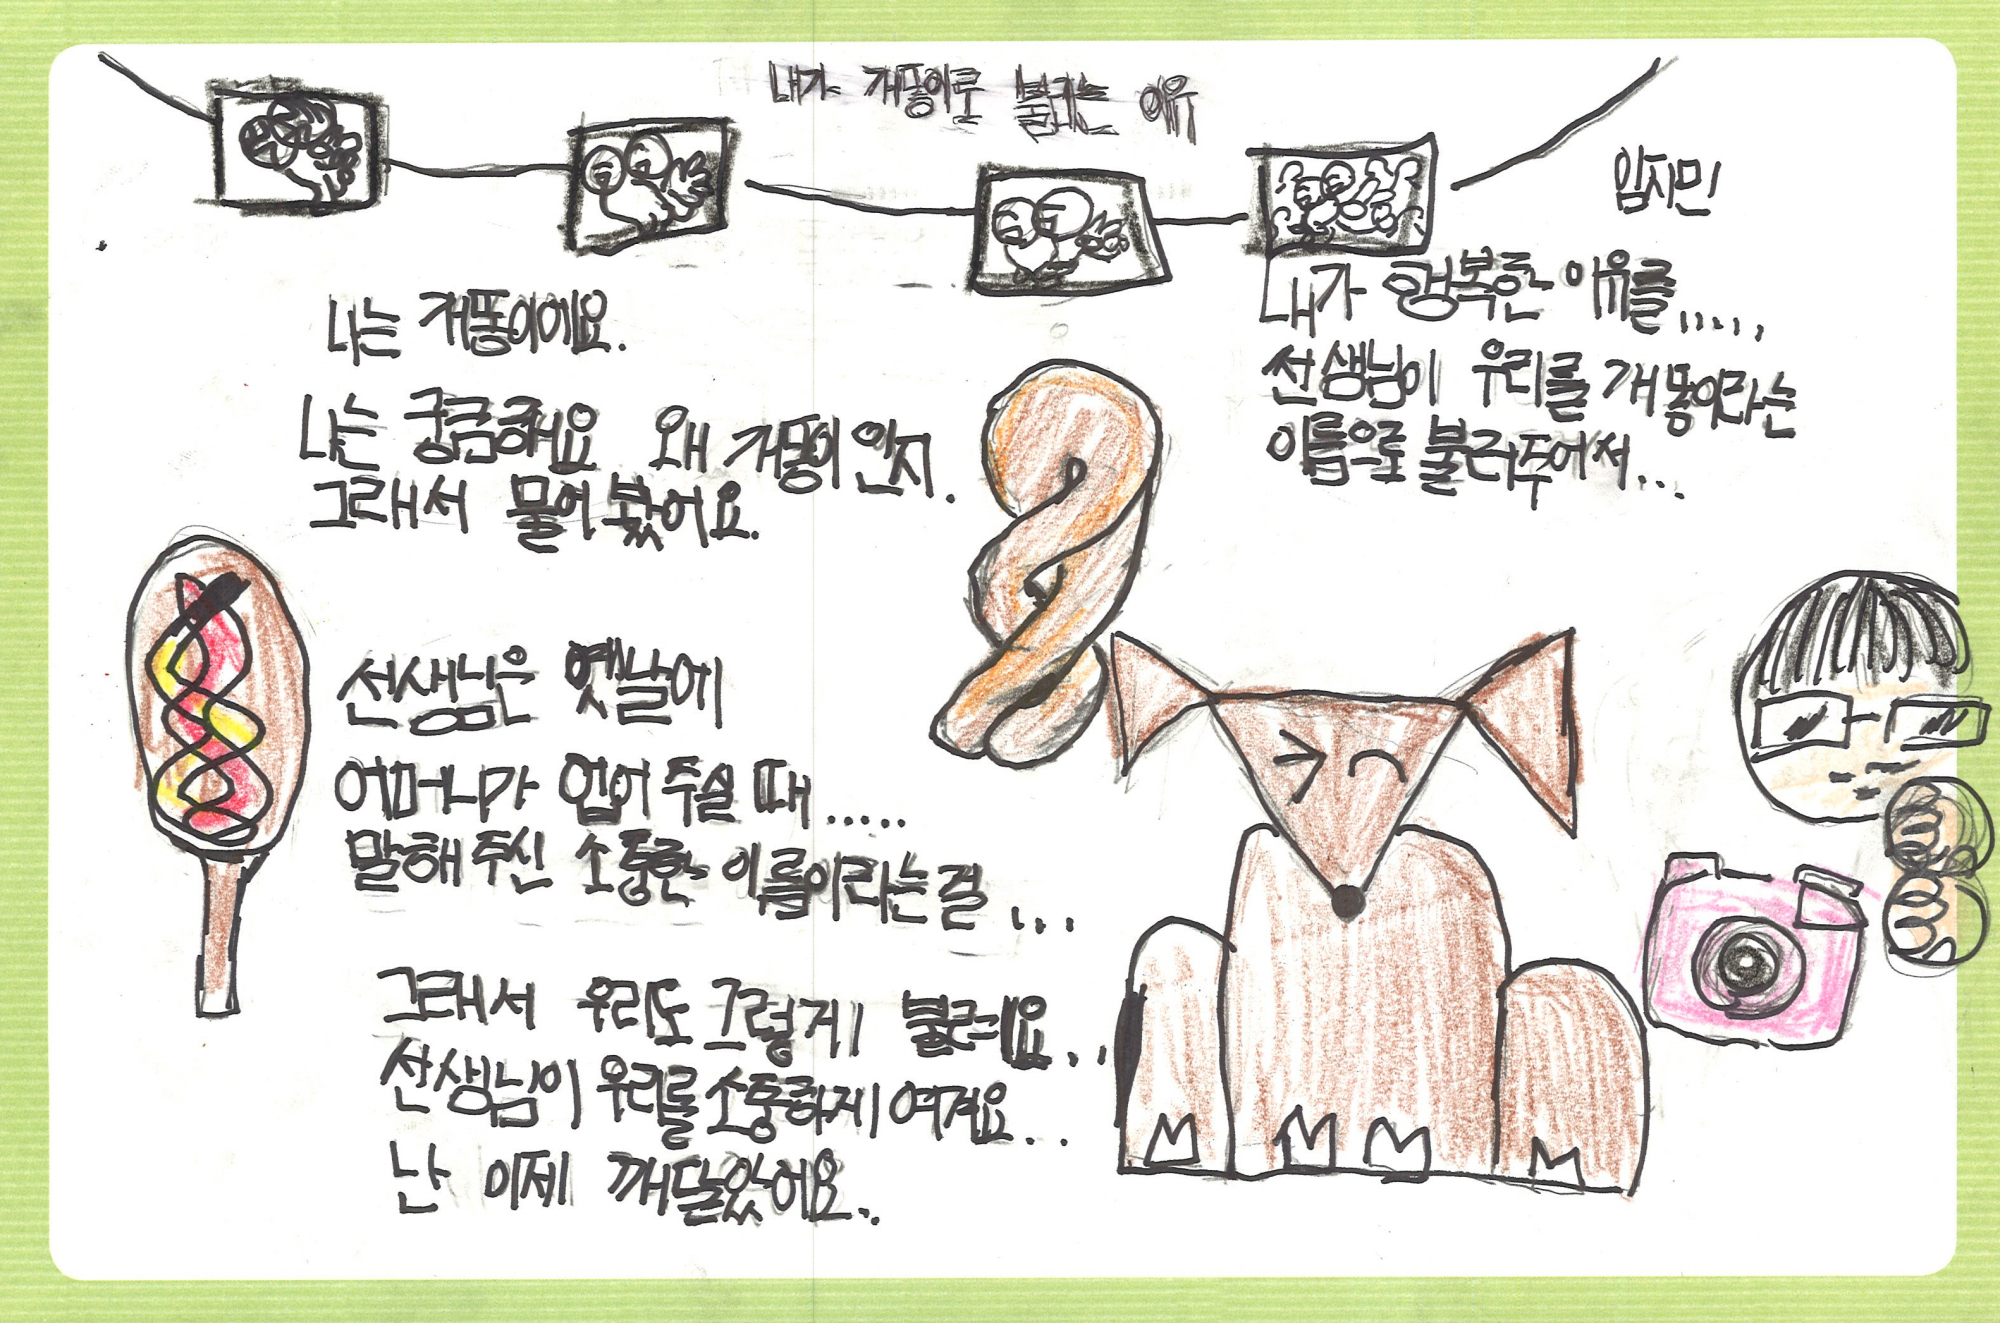 내가 개똥이로 불리는 이유
임지민
나는 개똥이에요.
나는 궁금해요 왜 개똥이인지.
그래서 물어봤어요.
선생님은 옛날에
어머니가 업어 주실 때.....
말해주신 소중한 이름이라는걸...
그래서 우리도 그렇게 불러요...
선생님이 우리를 소중하게 여겨요...
난 이제 깨달았어요..
내가 행복한 이유를.....
선생님이 우리를 개똥이라는
이름으로 불러주어서...